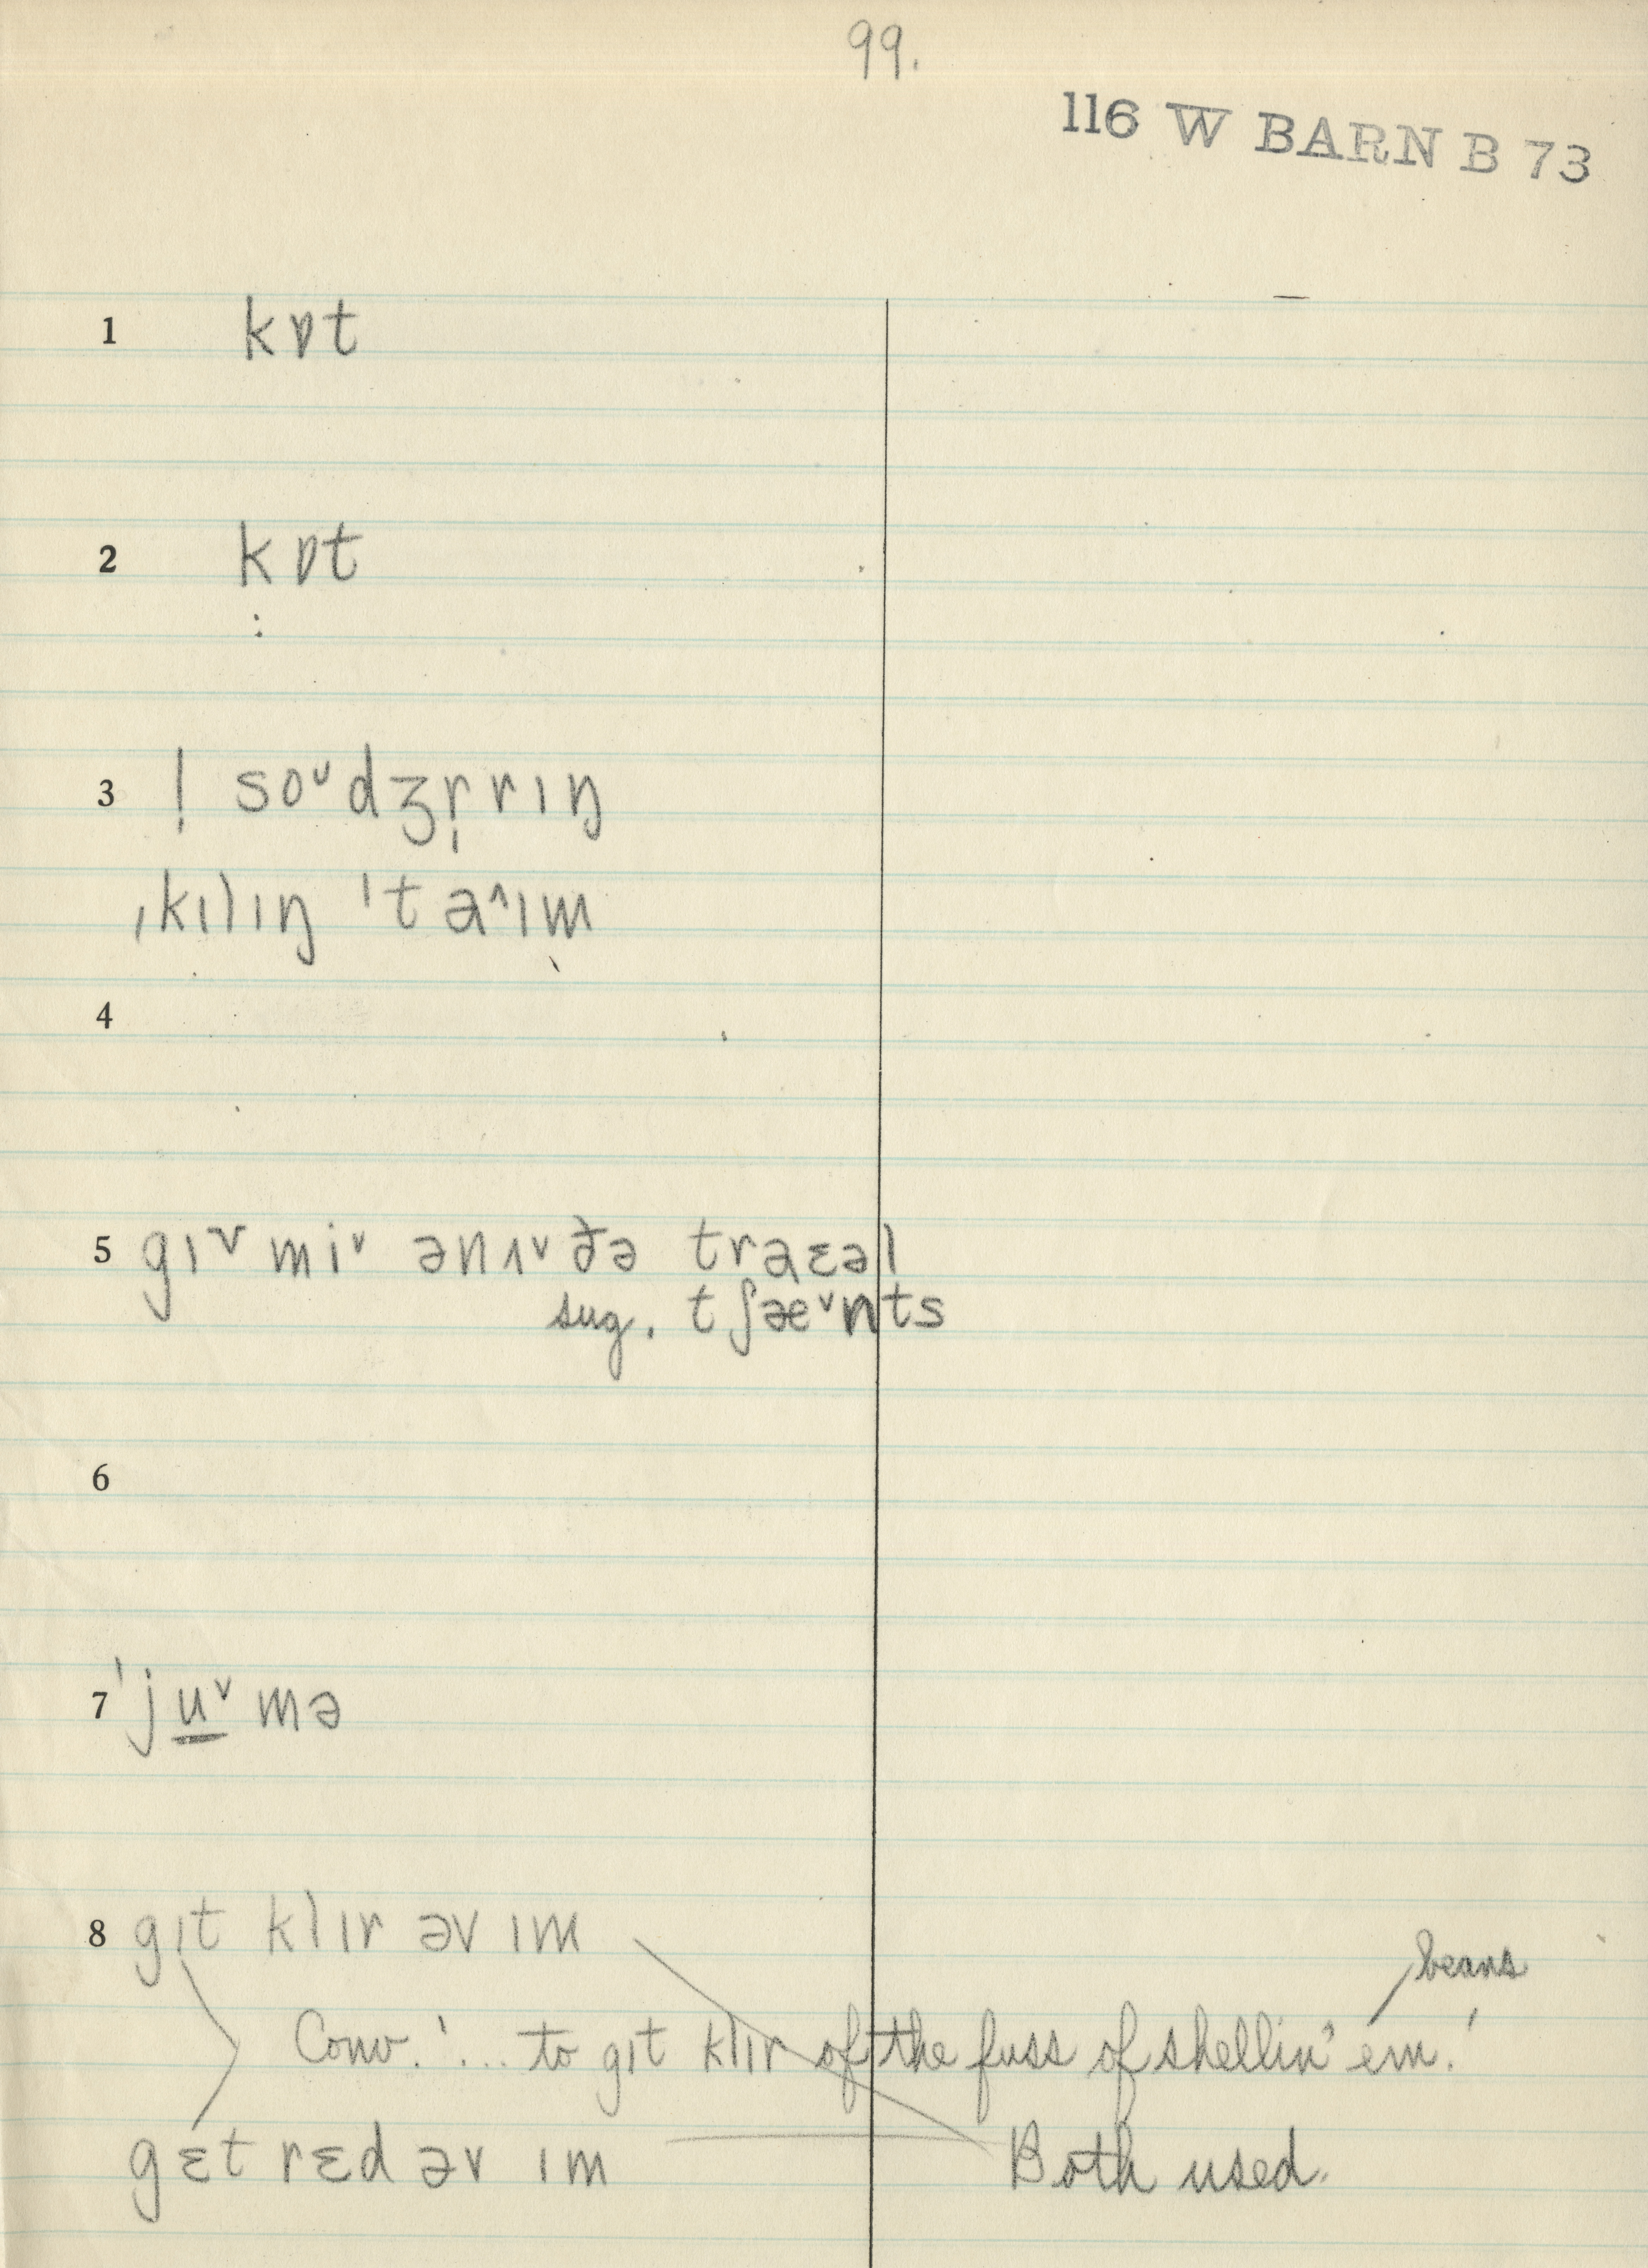 99.
116 W BARN B 73
1 kɒt
2 kɒt
3 ˈsoᵘdʒr̩rɪŋ
ˌkɪlɪŋ ˈta^ɪm
4
5 gɪ˅ mi˅ ənʌ˅ðə traɛəl
sug. tʃæ˅nts
6
7 ˈju̲˅mə
8 gɪt klɪr əv ɪm
beans
Conv. '... to gɪt klɪr of the fuss of shellin' em.'
gɛt rɛd əv ɪm Both used.